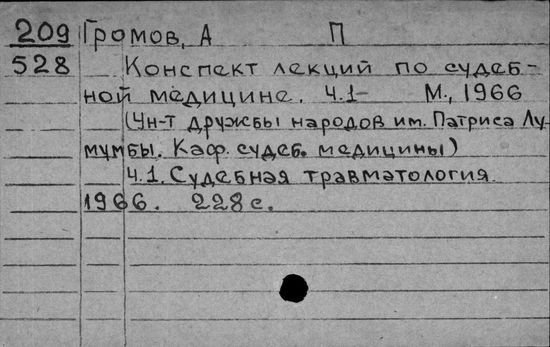 209 Громов, А П
528 Конспект лекций по судеб-
ной медицине. Ч.1- М., 1966
(Ун-т дружбы народов им. Патриса Лу-
мумбы. Каф. судеб. медицины)
Ч.1. Судебная травматология.
1966. 228 с.